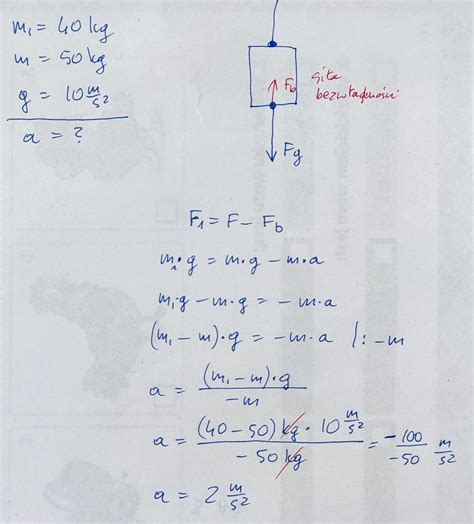 m₁ = 40 kg
m = 50 kg
g = 10 m/s²
a = ?
F_b siła
bezwładności
F_g
F₁ = F - F_b
m₁·g = m·g - m·a
m₁·g - m·g = -m·a
(m₁ - m)·g = -m·a /: -m
a = (m₁ - m)·g / -m
a = (40 - 50) kg · 10 m/s² / -50 kg = -100 / -50 m/s²
a = 2 m/s²